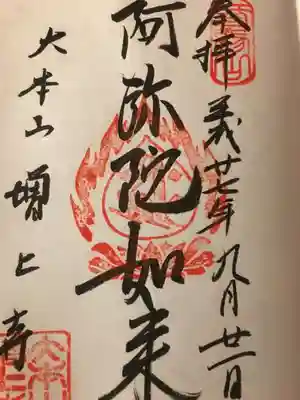 奉拝
義廿七年九月廿一日
阿弥陀如来
大本山 増上寺